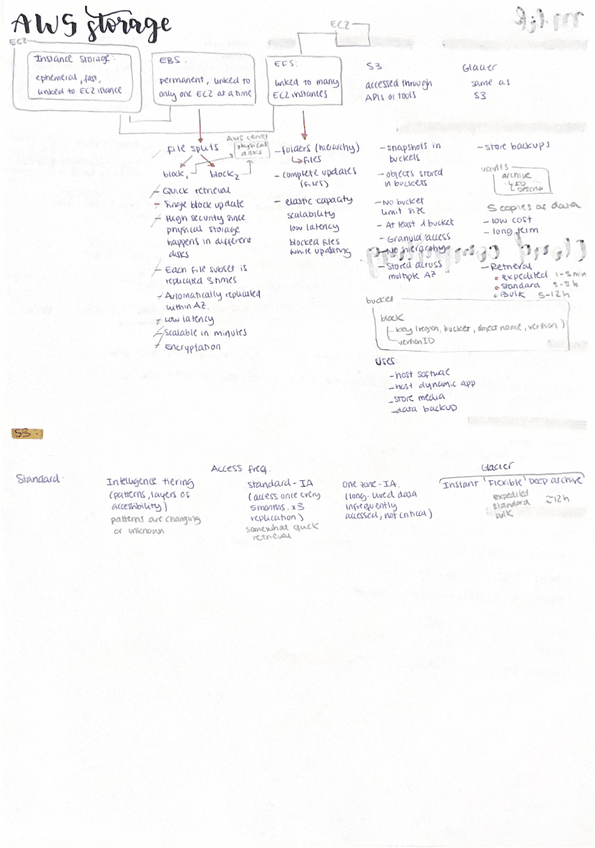 AWS storage
EC2
EC2
Instance Storage:
ephemeral, fast,
linked to EC2 instance
EBS
permanent, linked to
only one EC2 at a time
EFS
linked to many
EC2 instances
S3
accessed through
APIs or tools
Glacier
same as
S3
file splits
block1
block2
AWS server
physical
disks
- Quick retrieval
- Single block update
- High security since
physical storage
happens in different
discs
- Each file subset is
replicated 3 times
- Automatically replicated
within AZ
- Low latency
- Scalable in minutes
- encryptation
- folders (hierarchy)
files
- complete updates
(files)
- elastic capacity
scalability
low latency
blocked files
while updating
- snapshots in
buckets
- objects stored
in buckets
- No bucket
limit size
- At least 1 bucket
- Granular access
- No hierarchy
- Stored across
multiple AZ
- store backups
vaults
archive
- low cost
- long term
- Retrieval
expedited 1-5min
standard 3-5h
Bulk 5-12h
bucket
block
key (region, bucket, object name, version)
version ID
Uses:
- host software
- host dynamic app
- store media
- data backup
S3 -
Standard
Access freq.
Intelligence tiering
(patterns, layers of
accessibility)
patterns are changing
or unknown
standard-IA
(access once every
months. x3
replication)
somewhat quick
retrieval
One zone-IA.
(long-lived data
infrequently
accessed, not critical)
Glacier
Instant Flexible Deep archive
expedited
standard
bulk
≈12h